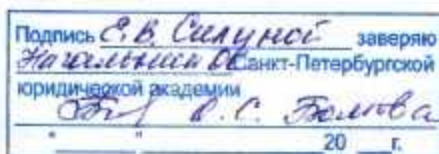 Подпись Е.В. Силуной заверяю
Начальник ОК Санкт-Петербургской
юридической академии
О.С. Болтова
" " 20 г.